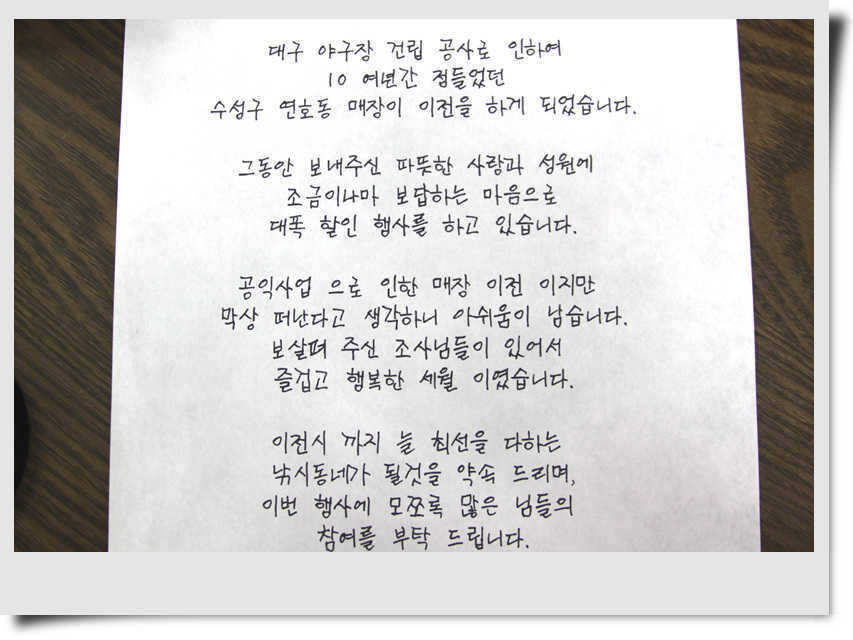 대구 야구장 건립 공사로 인하여
10 여년간 정들었던
수성구 연호동 매장이 이전을 하게 되었습니다.
그동안 보내주신 따뜻한 사랑과 성원에
조금이나마 보답하는 마음으로
대폭 할인 행사를 하고 있습니다.
공익사업 으로 인한 매장 이전 이지만
막상 떠난다고 생각하니 아쉬움이 남습니다.
보살펴 주신 조사님들이 있어서
즐겁고 행복한 세월 이였습니다.
이전시 까지 늘 최선을 다하는
낚시동네가 될것을 약속 드리며,
이번 행사에 모쪼록 많은 님들의
참여를 부탁 드립니다.